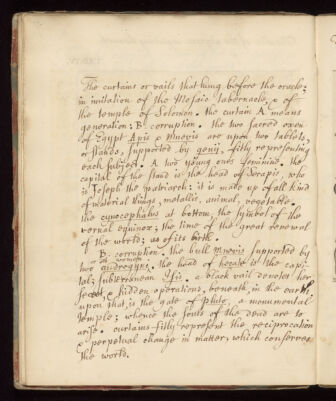 The curtains or vails that hung before the oracle;
in imitation of the Mosaic tabernacle, & of
the temple of Solomon. the curtain A means
generation: B. corruption. the two sacred oxen
of Egypt Apis & Mnevis are upon two tablets,
or stands, supported by genii, fitly representing
each subject. A two young ones feminine. the
capital of the stand is the head of Serapis, who
is Joseph the patriarch: it is made up of all kind
of material things, metallic, animal, vegetable.
the cynocephalus at bottom, the symbol of the
vernal equinox; the time of the great renewal
of the world; as of its birth.
B. corruption. the bull Mnevis supported by
two androgyns. the head of hecate is the capi-
tal; subterranean Isis. a black vail denotes her
secret & hidden operations, beneath, in the earth.
upon that is the gate of Pluto, a monumental
temple; whence the souls of the dead are to
arise. curtains fitly represent the reciprocation
& perpetual change in matter, which conserves
the world.